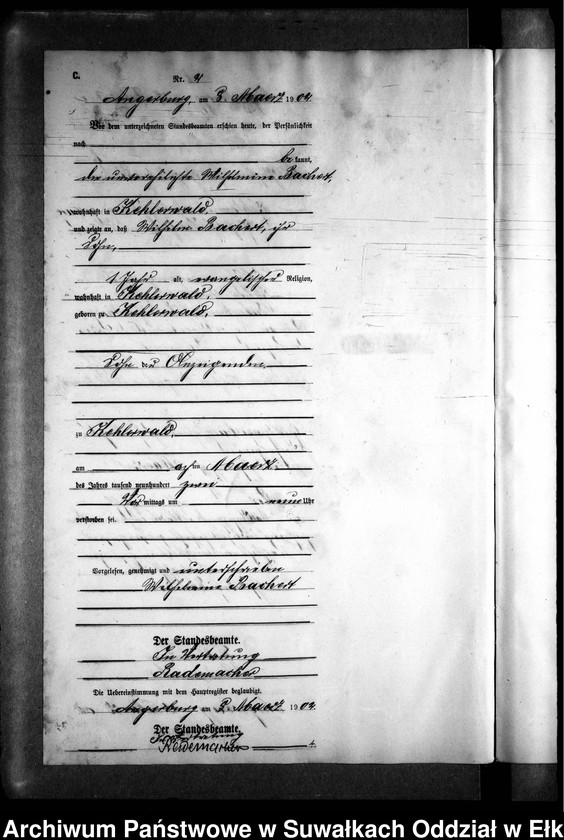 C.
Nr.
Angerburg, am 3. Maerz 1902
Vor dem unterzeichneten Standesbeamten erschien heute, der Persönlichkeit
nach
be kannt,
die unverehelichte Wilhelmine Bachert,
wohnhaft in Kehlerwald,
und zeigte an, daß Wilhelm Bachert, ihr
Sohn,
1 Jahr alt, evangelischer Religion,
wohnhaft in Kehlerwald,
geboren zu Kehlerwald,
Sohn der Anzeigenden
zu Kehlerwald,
am Maerz
des Jahres tausend neunhundert zwei
Vor mittags um neun Uhr
verstorben sei.
Vorgelesen, genehmigt und unterschrieben
Wilhelmine Bachert
Der Standesbeamte.
In Vertretung
Rademacher
Die Uebereinstimmung mit dem Hauptregister beglaubigt.
Angerburg am 3. Maerz 1902
Der Standesbeamte.
In Vertretung
Rademacher
Archiwum Państwowe w Suwałkach Oddział w Ełk